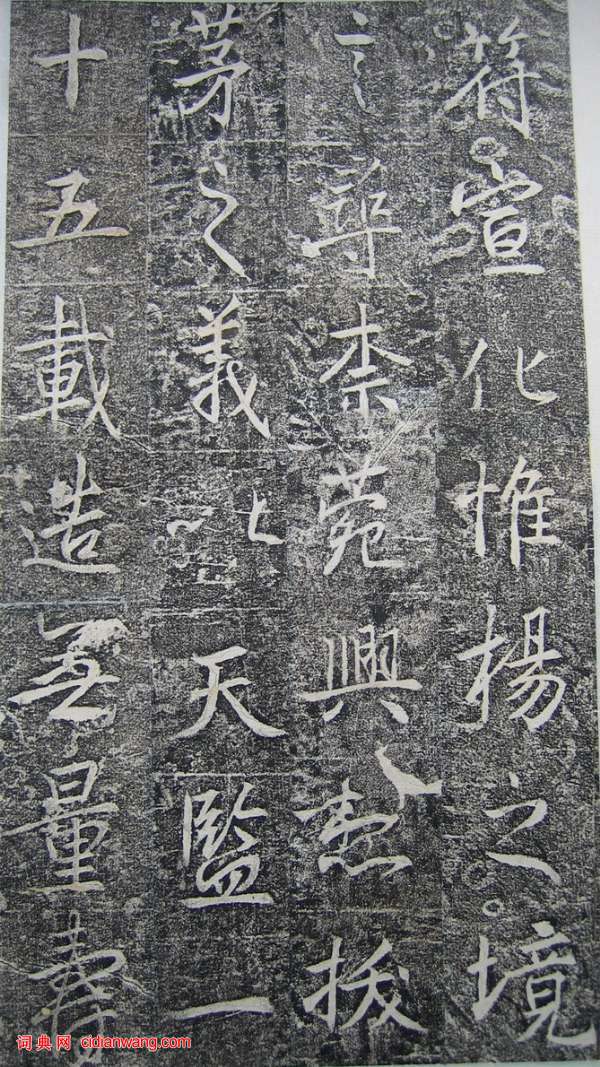 符宣化惟楊之境
言尋柰菀興拔
茅之義以天監一
十五載造無量壽
词典网 cidianwang.com